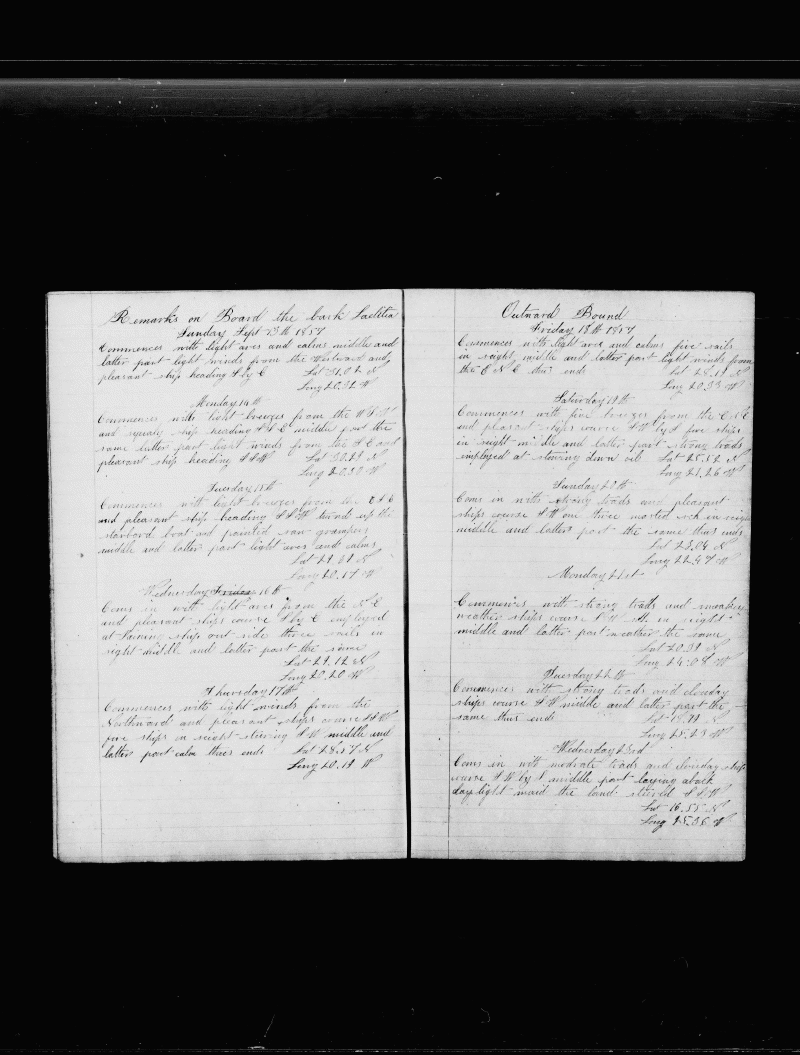 Remarks on Board the bark Laetitia
Sunday Sept 13th 1857
Commences with light ares and calms middle and
latter part light winds from the Westward and
pleasant ship heading S by E Lat 31.02 N
Long 20.32 W
Monday 14th
Commences with light breezes from the W S W
and squaly ship heading S S E middle part the
same latter part light winds from the S E and
pleasant ship heading S S W Lat 30.29 N
Long 20.30 W
Tuesday 15th
Commences with light breezes from the E S E
and pleasant ship heading S S W turnd up the
starbord boat and painted saw grampus
middle and latter part light ares and calms
Lat 29.39 N
Long 20.17 W
Wednesday Friday 16th
Coms in with light ares from the N E
and pleasant ships course S by E employed
at ship out side three sails in
sight middle and latter part the same
Lat 29.12 N
Long 20.20 W
Thursday 17th
Commences with light winds from the
Northward and pleasant ships course S S W
five ships in sight steering S W middle and
latter part calm thus ends Lat 28.57 N
Long 20.19 W
Outward Bound
Friday 18th 1857
Commences with light are and calms five sails
in sight middle and latter part light winds from
the E N E thus ends Lat 28.19 N
Long 20.33 W
Saturday 19th
Commences with fine breezes from the E N E
and pleasant ships course S W by S five ships
in sight middle and latter part strong trads
employed at stowing down oil Lat 25.52 N
Long 21.26 W
Sunday 20th
Coms in with strong trads and pleasant
ships course S W one three masted sch in sight
middle and latter part the same thus ends
Lat 23.04 N
Long 22.47 W
Monday 21st
Commences with strong trads and smokey
weather ships course S W in sight
middle and latter part weather the same
Lat 20.39 N
Long 24.08 W
Tuesday 22th
Commences with strong trads and clouday
ships course S W middle and latter part the
same thus ends Lat 18.71 N
Long 25.23 W
Wednesday 23rd
Coms in with modrate trads and clouday ships
course S W by S middle part laying aback
day light maid the land steered S S W
Lat 16.55 N
Long 25.36 W